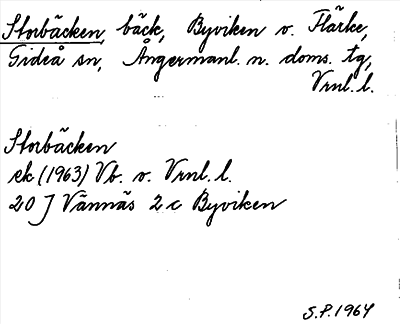 Storbäcken, bäck, Byviken v. Flärke,
Gideå sn, Ångermanl. n. doms. tg,
Vrnl. l.
Storbäcken
ek (1963) Vb. o. Vrnl. l.
20 J Vännäs 2 c Byviken
S.P. 1964